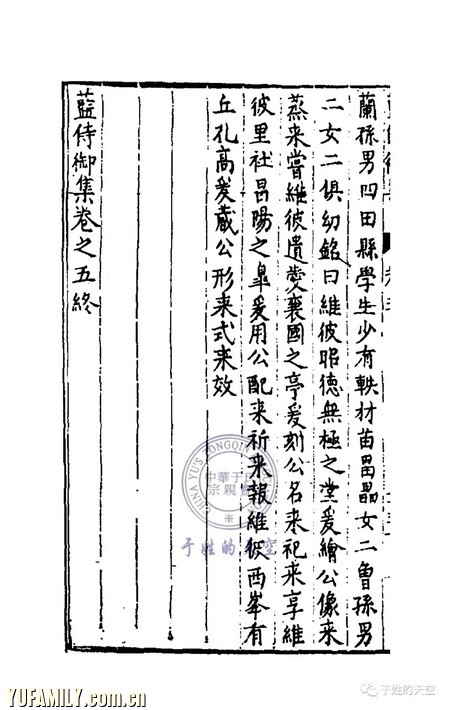 蘭孫男四田縣學生少有軼材苗畱畾女二曽孫男
二女二俱幼銘曰維彼昭德無極之堂爰繪公像来
蒸来嘗維彼遺愛襄國之亭爰刻公名来祀来享維
彼里社昌陽之臯爰用公配来祈来報維彼西峯有
丘孔高爰蔵公形来式来效
藍侍御集卷之五終
中華于氏
宗親
于姓的天空
YUFAMILY.com.cn
于姓的天空